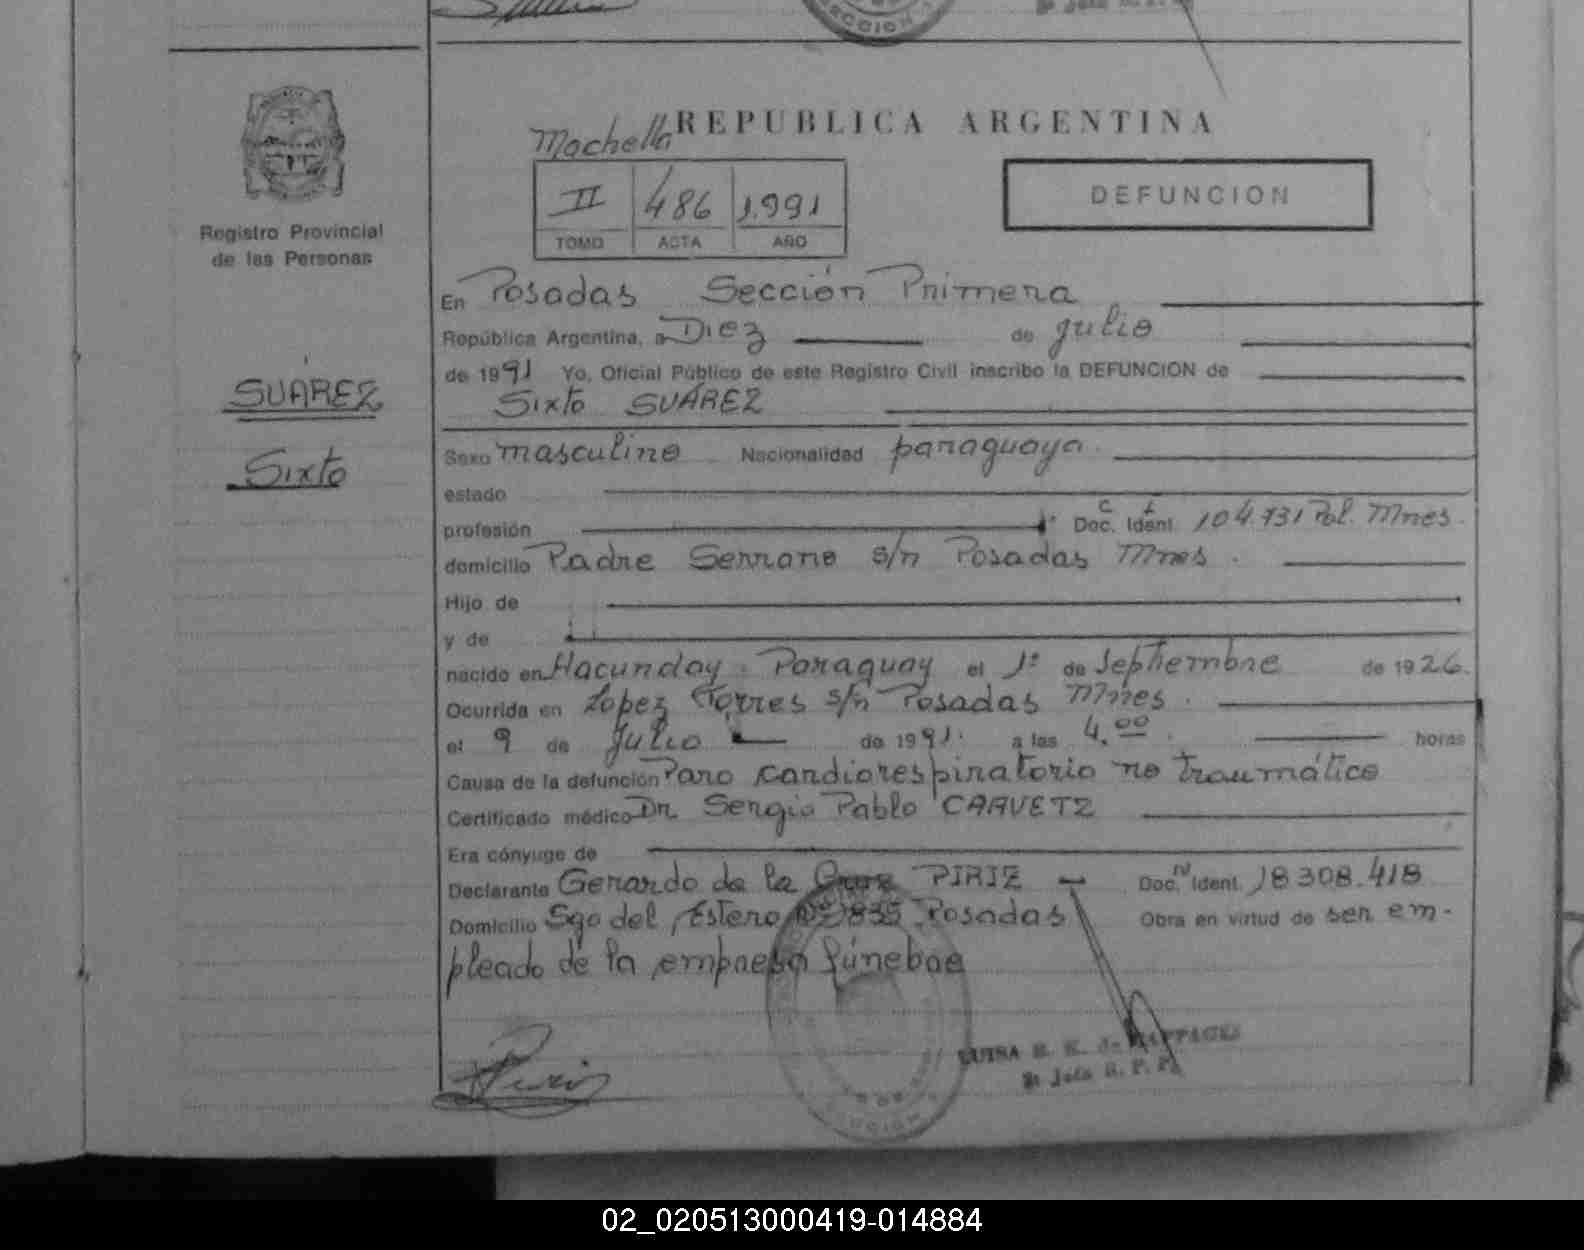 SECCION
REPUBLICA ARGENTINA
Machella
II 486 1.991
TOMO ACTA AÑO
DEFUNCION
Registro Provincial
de las Personas
SUÁREZ
Sixto
En Posadas Sección Primera
República Argentina, a Diez de julio
de 1991 Yo, Oficial Público de este Registro Civil inscribo la DEFUNCION de
Sixto SUÁREZ
Sexo masculino Nacionalidad paraguaya.
estado
profesión C I Doc. Ident. 104.731 Pol. Mnes.
domicilio Padre Serrano s/n Posadas Mnes.
Hijo de
y de
nacido en Hacunday. Paraguay el 1º de Septiembre de 1926.
Ocurrida en Lopez Torres s/n Posadas Mnes.
el 9 de Julio de 1991. a las 4.00. horas
Causa de la defunción Paro cardiorespiratorio no traumático
Certificado médico Dr Sergio Pablo
Era cónyuge de
Declarante Gerardo de la Cruz PIRIZ Doc. N Ident. 18308.418
Domicilio Sgo del Estero Nº 1835 Posadas Obra en virtud de ser em-
pleado de la empresa fúnebre
LUISA R. de
Jefe R. P. P.
02_020513000419-014884